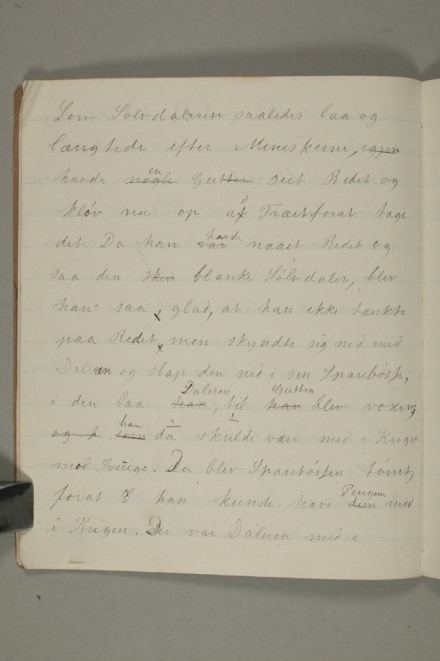 Som Sølvdaleren saaledes laa og
længtede efter Meneskerne, igjen
havde nogle en Gutter seet Redet og
kløv nu op af Træet forat tage
det. Da han var havde naaet Redet og
saa den sken blanke Sølvdaler, blev
han saa glad, at han ikke tænkte
paa Redet, men skyndte sig ned med
Daleren og slap den ned i sin Sparebøsse;
i den laa han Daleren, til han Gutten blev voxen,
og som han da skulde være med i Krigen
mod Sverige. Da blev Sparebøssen tømt,
forat han kunde have dem Pengene med
i Krigen. Der var Daleren med i